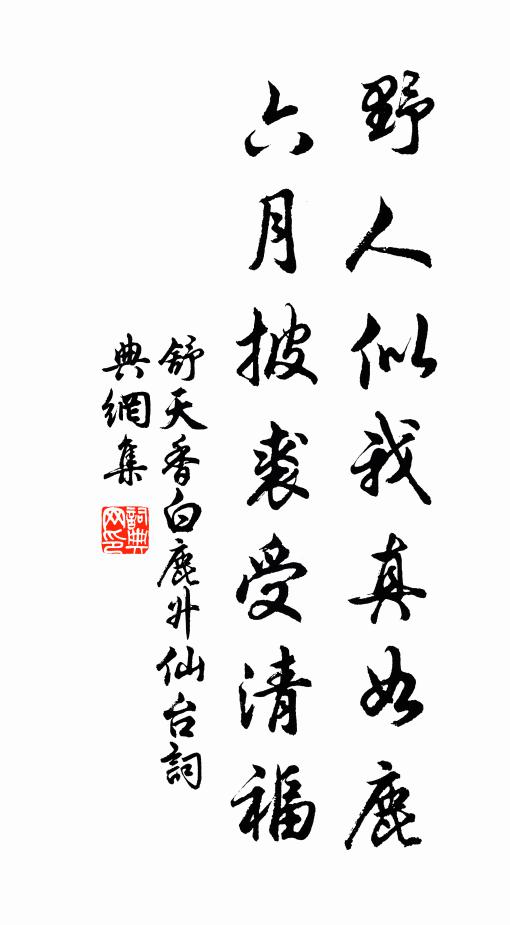 野人似我真如鹿
六月披裘受清福
舒天香白鹿升仙台詞
典網集
詞典网印